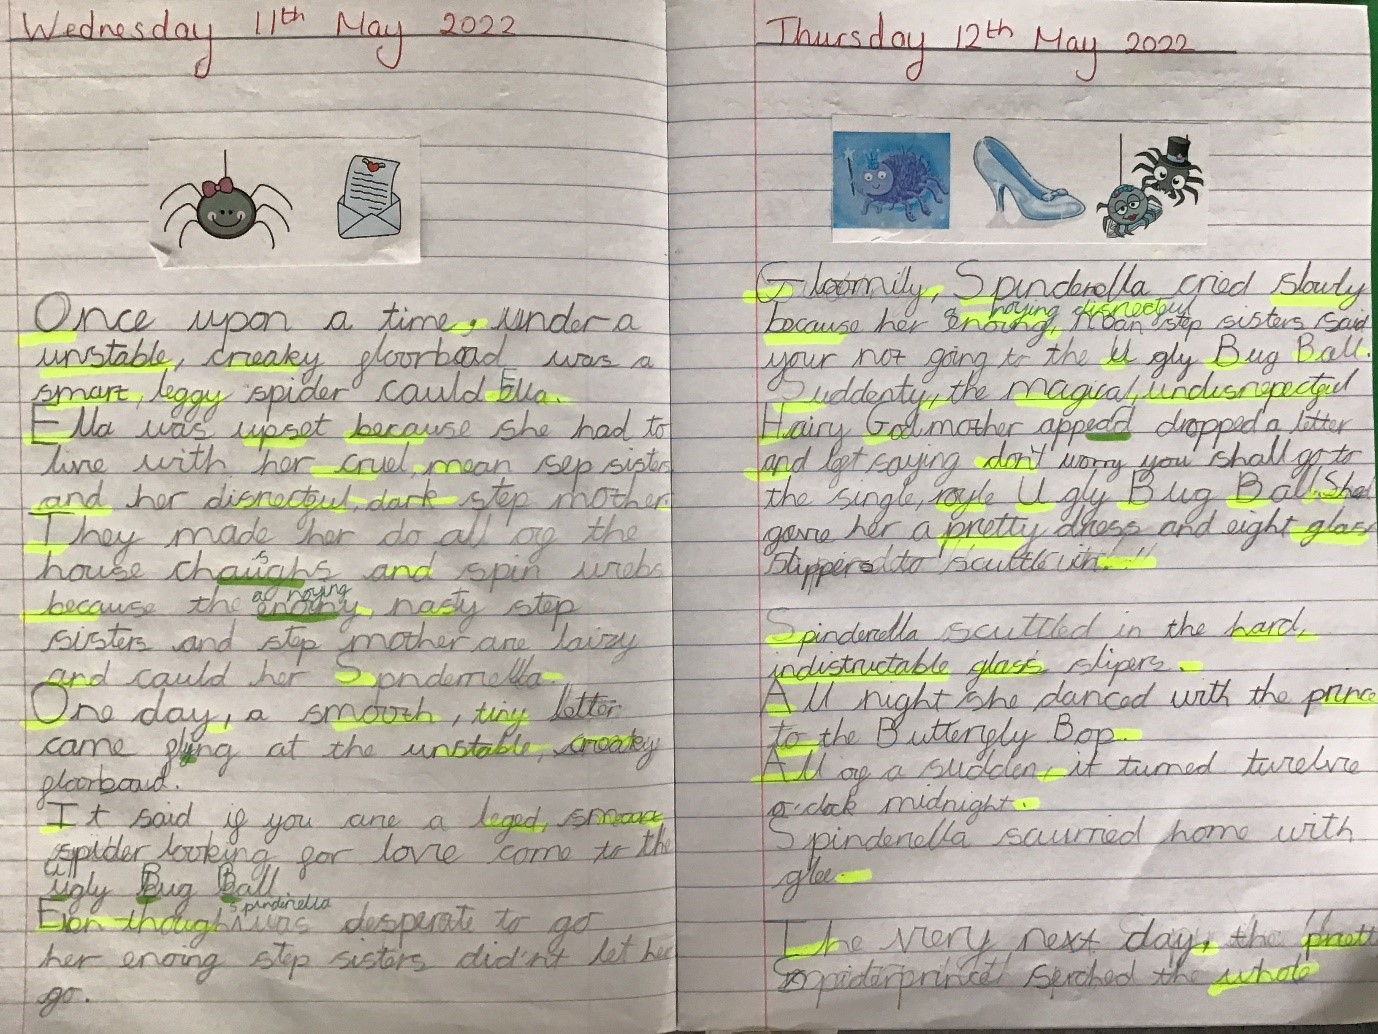 Wednesday 11th May 2022
Once upon a time, under a
unstable, creaky floorboad was a
smart, leggy spider cauld Ella.
Ella was upset because she had to
live with her cruel, mean sep sisters
and her disrectful, dark step mother.
They made her do all of the
house chaughs and spin webs
s
because the enoiny, nasty step
anoying
sisters and step mother are laizy
and could her Spnderrella.
One day, a smooth, tiny letter
came flying at the unstable, creaky
floorboard.
It said if you are a leged, smart
spider looking for love come to the
ugly Bug Ball
Eon though was desperate to go
spinderella
her enoing step sisters did'nt let her
go.
Thursday 12th May 2022
Gloomily, Spinderella cried slowly
because her enoing, step sisters said
noying disrectful
your not going to the Ugly Bug Ball.
Suddenty, the magical, undisrespectful
Hairy Godmother appeard dropped a letter
and left saying don't worry you shall go to
the single, royle Ugly Bug Ball. Shed
gave her a pretty dress and eight glass
slippers to scuttle in!!!
Spinderella scuttled in the hard,
indistructable glass slipers.
All night she danced with the prince
to the Butterfly Bop.
All of a sudden, it turned twelve
o'clok midnight.
Spinderella scurried home with
glee.
The very next day, the prett
Spiderprince serched the whole